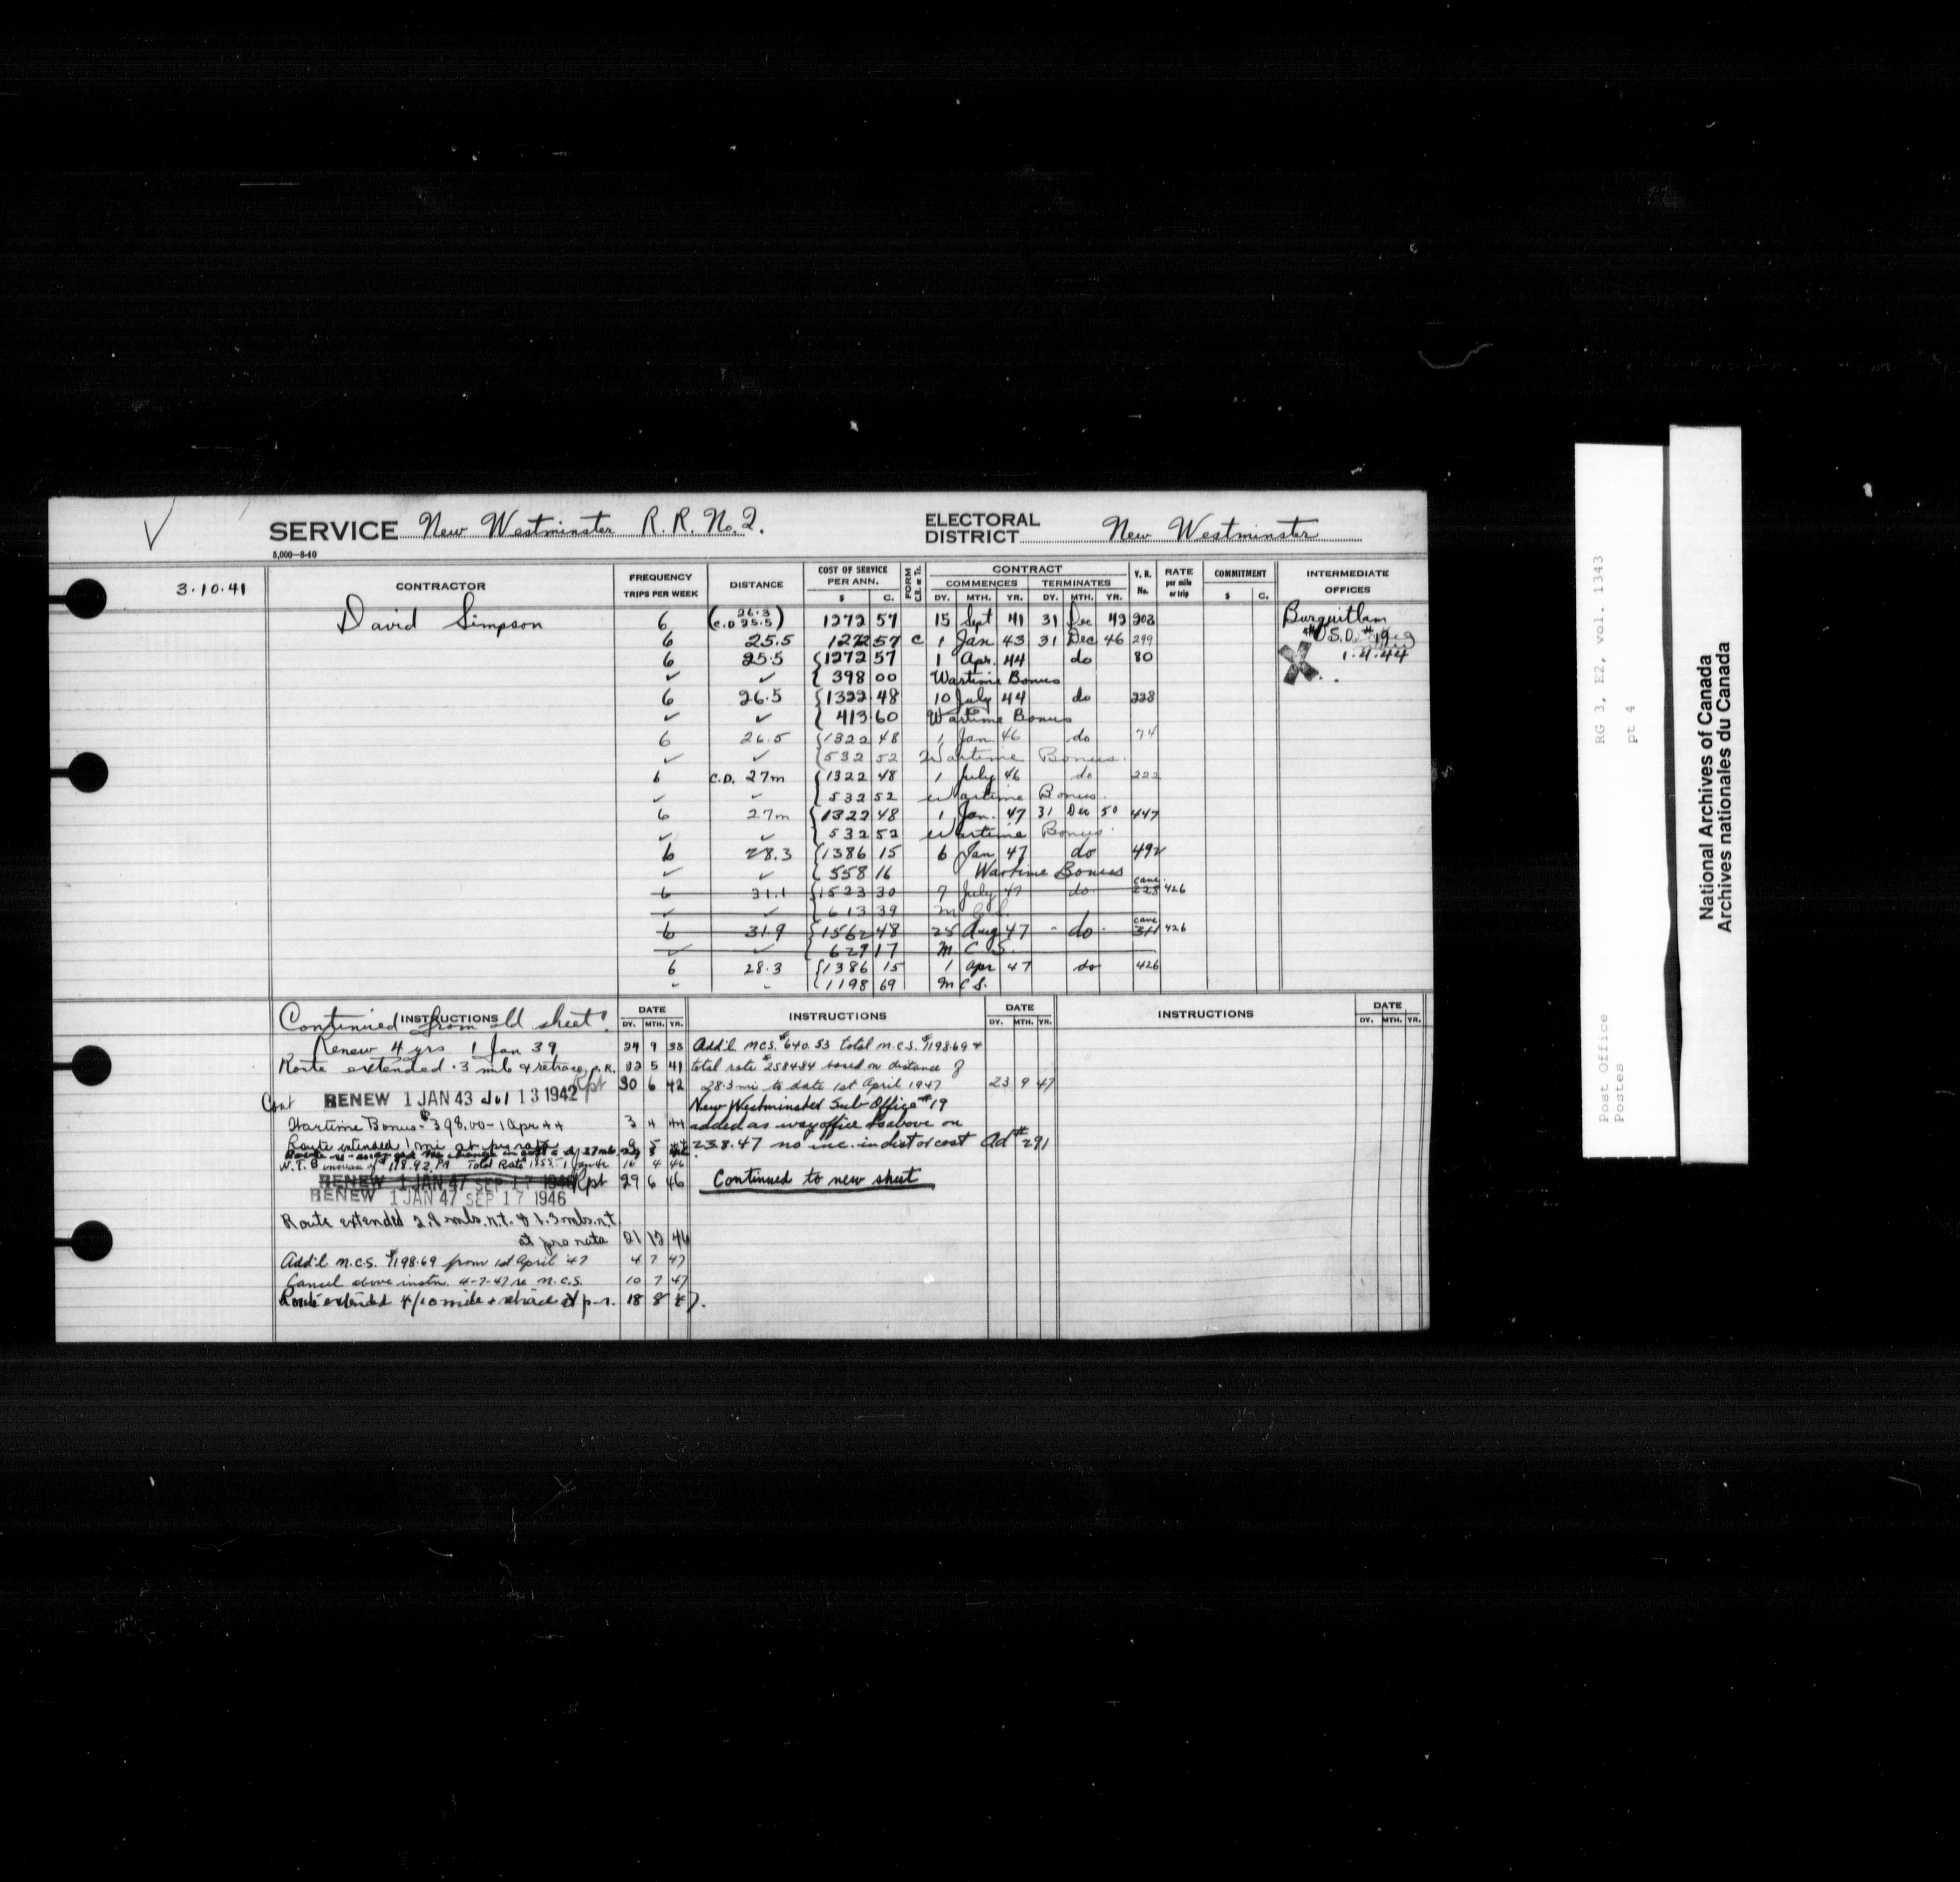 SERVICE New Westminster R. R. No. 2.
ELECTORAL DISTRICT New Westminster
5,000—8-40
3.10.41
CONTRACTOR FREQUENCY TRIPS PER WEEK DISTANCE COST OF SERVICE PER ANN. $ C. FORM C.R. or Tr. CONTRACT COMMENCES DY. MTH. YR. TERMINATES DY. MTH. YR. Y. R. No. RATE per mile or trip COMMITMENT $ C. INTERMEDIATE OFFICES
David Simpson 6 (26.3 C.D 25.5) 1272 57 15 Sept 41 31 Dec 42 203 Burquitlam
6 25.5 1272 57 C 1 Jan 43 31 Dec 46 299 S.O. #19
6 25.5 {1272 57 1 Apr. 44 do 80 1.4.44
✓ ✓ { 398 00 Wartime Bonus
6 26.5 {1322.48 10 July 44 do 228
✓ ✓ { 413.60 Wartime Bonus
6 26.5 {1322 48 1 Jan. 46 do 74
✓ ✓ {532 52 Wartime Bonus.
6 C.D. 27m {1322 48 1 July 46 do 222
✓ ✓ {532 52 Wartime Bonus.
6 27m {1322 48 1 Jan. 47 31 Dec 50 447
✓ ✓ {532 52 Wartime Bonus.
6 28.3 {1386 15 6 Jan 47 do 492
✓ ✓ {558 16 Wartime Bonus
6 31.1 {1523 30 7 July 47 do canc. 228 426
✓ ✓ {613 39 M C S.
6 31.9 {1562 48 25 Aug 47 do canc 311 426
✓ ✓ {629 17 M C S.
6 28.3 {1386 15 1 Apr 47 do 426
{1198 69 M C S.
INSTRUCTIONS DATE DY. MTH. YR. INSTRUCTIONS DATE DY. MTH. YR. INSTRUCTIONS DATE DY. MTH. YR.
Continued from old sheet.
Renew 4 yrs 1 Jan 39 24 9 38
Route extended .3 mls & retrace p.R. 22 5 41
Rpt 30 6 42
Cont RENEW 1 JAN 43 Jul 13 1942
Wartime Bonus $398.00 - 1 Apr 44 3 4 44
Route extended 1 mi at pro rata 9 5
W.T.B 118.92 PA Total Rate 1855 - 1 Jan 46 16 4 46
RENEW 1 JAN 47 SEP 17 1946 Rpt 29 6 46
RENEW 1 JAN 47 SEP 17 1946
Route extended 2.9 mls. r.t. & 1.3 mls. r.t.
at pro rata 21 12 46
Add'l M.C.S. $1198.69 from 1st April '47 4 7 47
Cancel above instn. 4-7-47 re M.C.S. 10 7 47
Route extended 4/10 mile & retrace at p-r. 18 8 47.
Add'l MCS. $640.53 total M.C.S. $1198.69 &
total rate $2584.84 based on distance of
28.3 mi to date 1st April 1947 23 9 47
New Westminster Sub Office #19
added as way office to above on
23.8.47 no inc. in dist or cost Ad #291
Continued to new sheet
RG 3, E2, vol. 1343
pt 4
Post Office
Postes
National Archives of Canada
Archives nationales du Canada